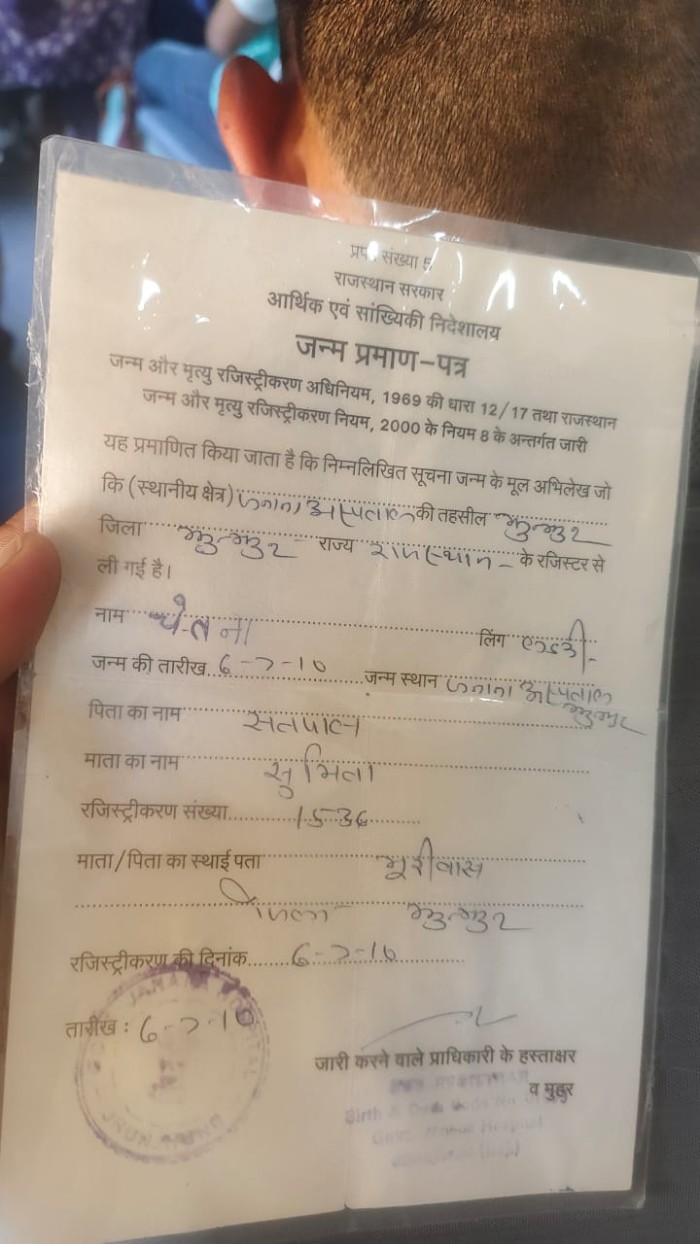 प्रपत्र संख्या 5
राजस्थान सरकार
आर्थिक एवं सांख्यिकी निदेशालय
जन्म प्रमाण-पत्र
जन्म और मृत्यु रजिस्ट्रीकरण अधिनियम, 1969 की धारा 12/17 तथा राजस्थान
जन्म और मृत्यु रजिस्ट्रीकरण नियम, 2000 के नियम 8 के अन्तर्गत जारी
यह प्रमाणित किया जाता है कि निम्नलिखित सूचना जन्म के मूल अभिलेख जो
कि (स्थानीय क्षेत्र) जनाना अस्पताल की तहसील झुन्झुनूं
जिला झुन्झुनूं राज्य राजस्थान के रजिस्टर से
ली गई है।
नाम चेतना लिंग लडकी
जन्म की तारीख 6-7-10 जन्म स्थान जनाना अस्पताल
झुन्झुनूं
पिता का नाम सतपाल
माता का नाम सुमिता
रजिस्ट्रीकरण संख्या 1536
माता/पिता का स्थाई पता भूरीवास
जिला झुन्झुनूं
रजिस्ट्रीकरण की दिनांक 6-7-10
तारीख : 6-7-10
जारी करने वाले प्राधिकारी के हस्ताक्षर
व मुहर